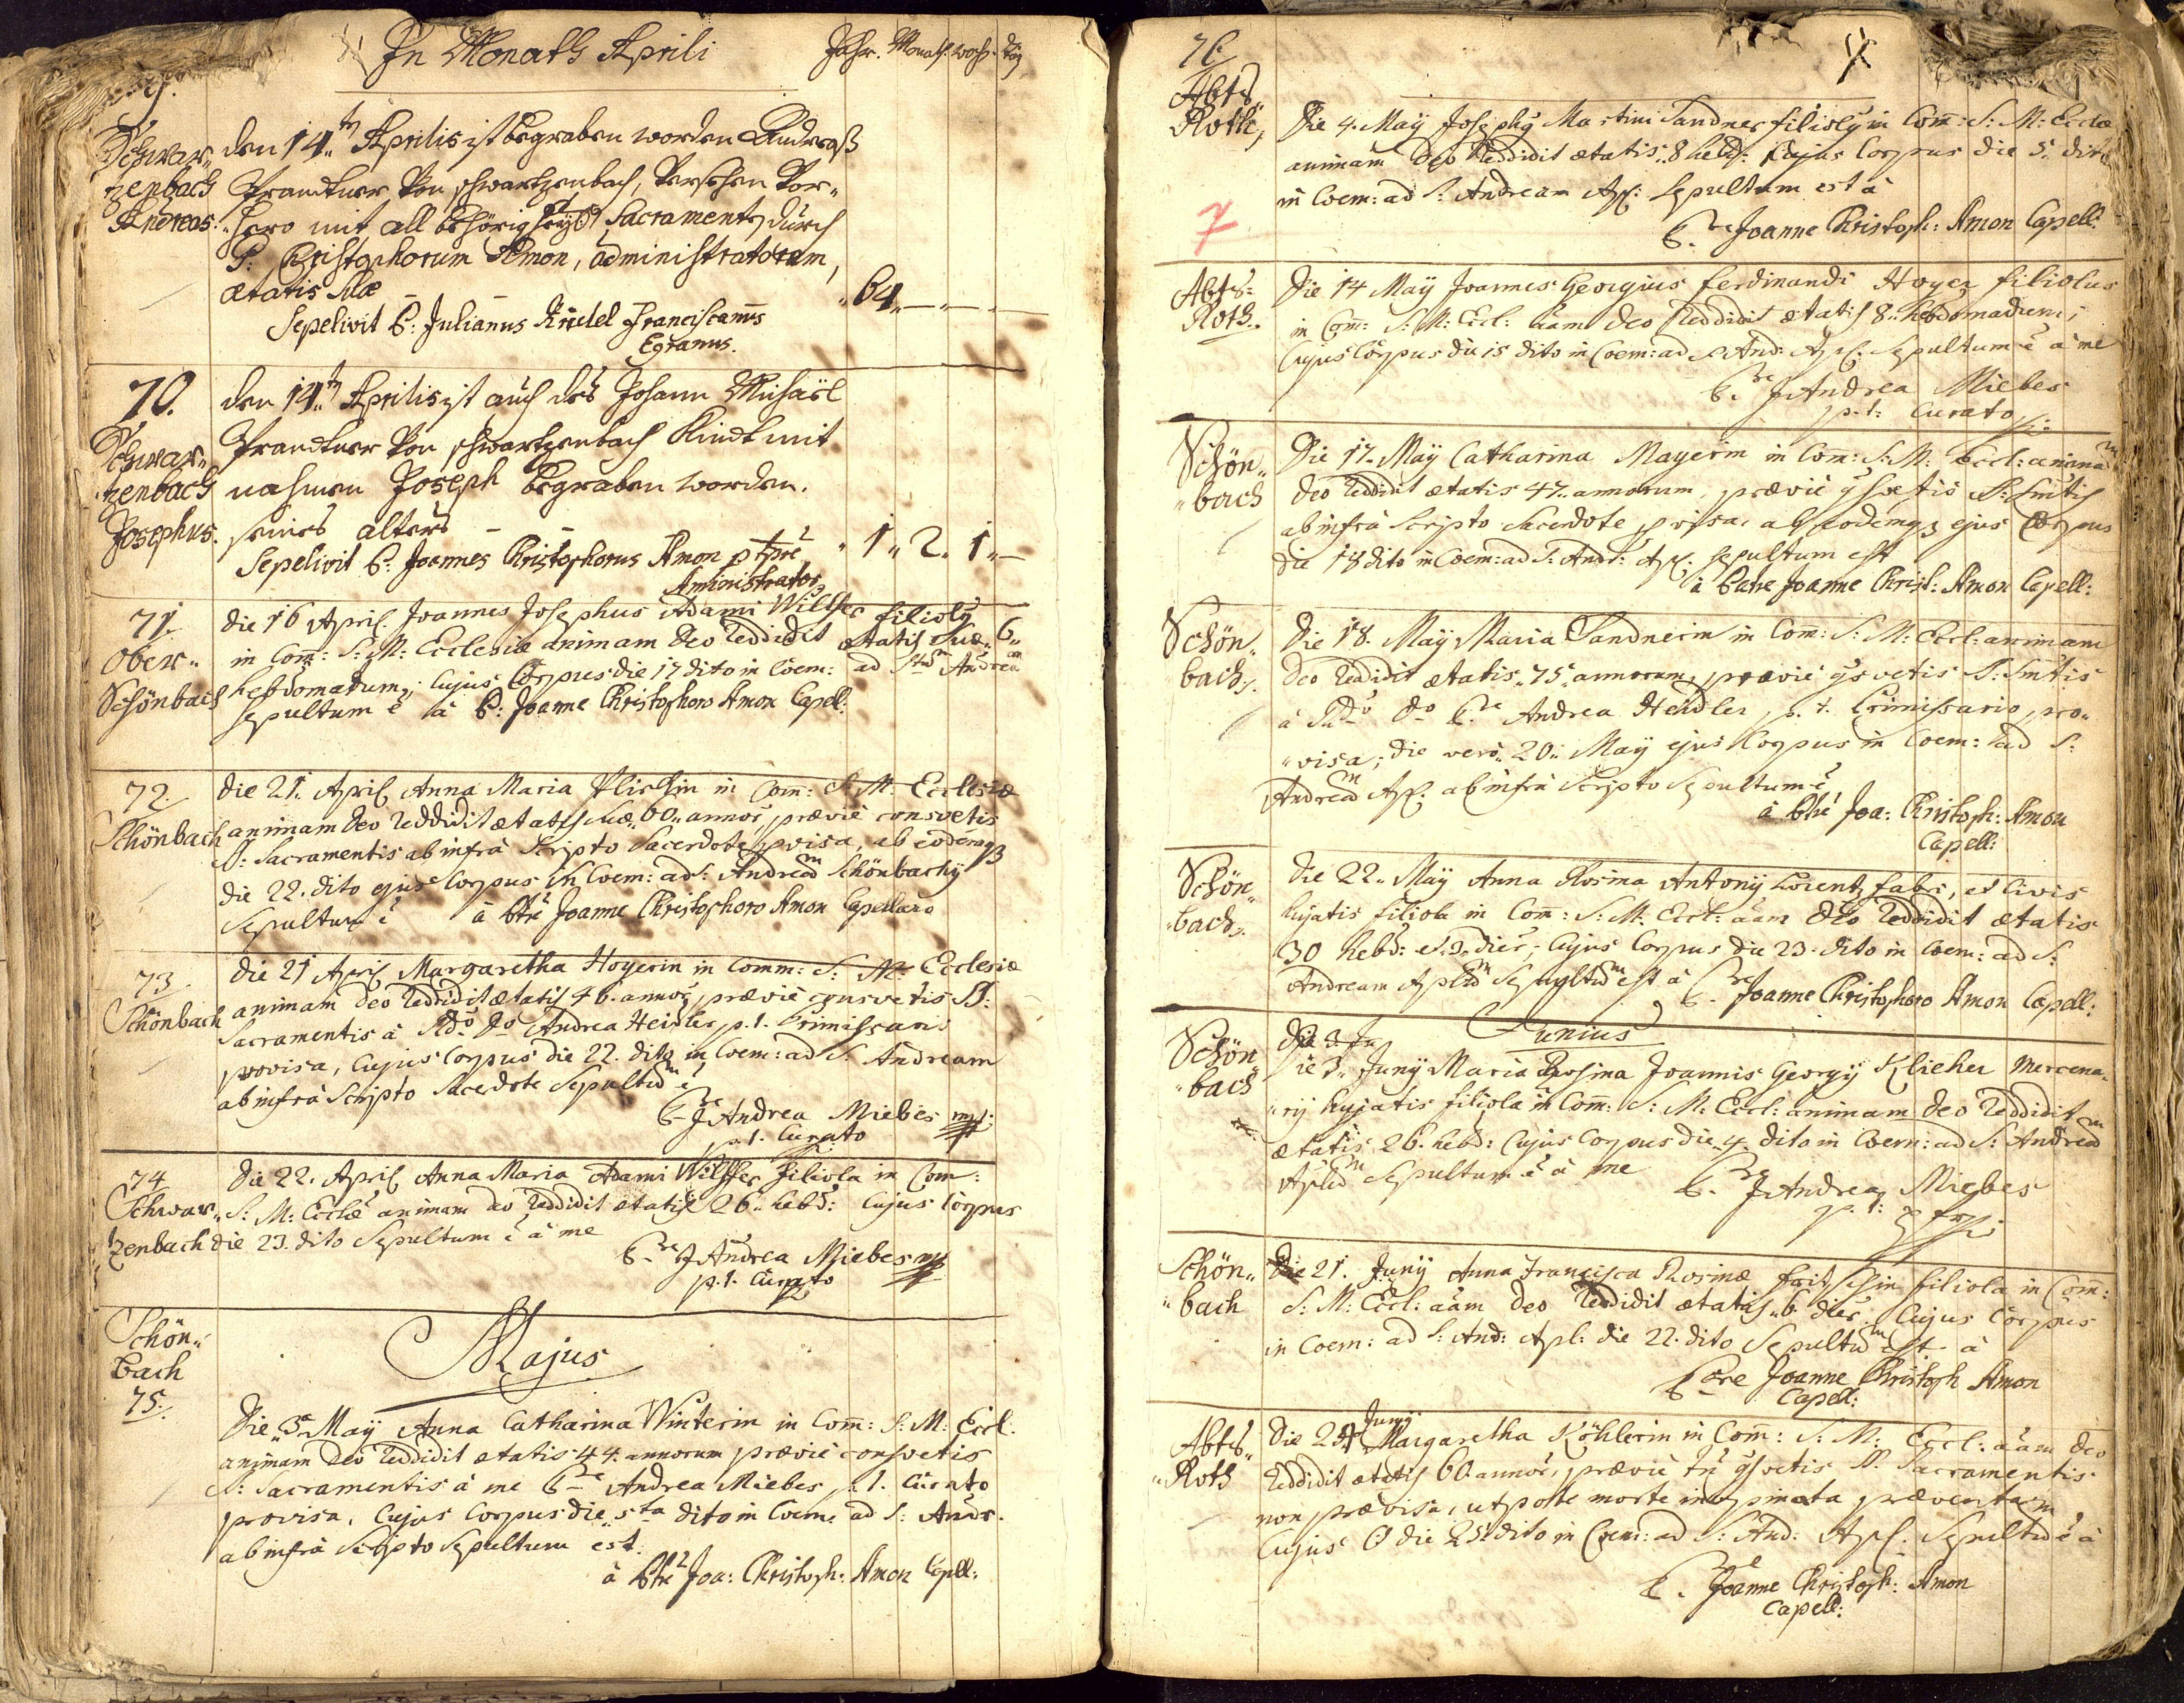 In Monath Aprili
Jahr. Monath. woch. Tag
Schwar„ den 14ten Aprilis ist begraben worden Andreaß
zenbach Prandtner Von schwartzenbach, Versehen Vor„
Andreas. hero mit all behörig heyl: Sacramenten durch
P: Christophorum Amon, administratorem,
ætatis suæ — — „64„—„—.—
Sepelivit P: Julianus Riedel Franciscanus
Egranus.
70. den 14ten Aprilis ist auch des Johann Michaël
Schwar„ Prandtner Von schwartzenbach Kindt mit
zenbach nahmen Joseph begraben worden.
Josephus. seines alters — — „1„ 2„ 1„—
Sepelivit P: Joannes Christophorus Amon p tpre
Aministrator
71. die 16 April Joannes Josephus Adami Wilffer filiolus
Ober„ in Com: S: M: Ecclesiæ animam Deo reddidit ætatis suæ„ 6„
Schönbach hebdomadum, cujus Corpus die 17 dito in Coem: ad Stum Andream
sepultum ē à P: Joanne Christophoro Amon Capell:
72. die 21. April Anna Maria in Com: S: M: Ecclesiæ
Schönbach animam deo reddidit ætatis suæ„ 60„ annor, prævie consvetis
S: Sacramentis ab infrà scripto Sacerdote pvisa, ab eodemq3
die 22. dito ejus Corpus in Coem: ad S: Andream Schönbachij
Sepultum ē à Ptre Joanne Christophoro Amon Capellano
73. die 21 April Margaretha Hoyerin in Comm: S: M: Ecclesiæ
Schönbach animam deo reddidit ætatis 46. annor, prævie consvetis SS:
Sacramentis à Rdo Do Andrea Heidler p. t. Primissario
provisa, cujus Corpus die 22. dito in Coem: ad S: Andream
ab infrà scripto Sacerdote Sepultum ē
P-re J Andrea Miebes mp:
p. t. Curato
74 die 22. April Anna Maria Adami Wilffer filiola in Com:
Schwar„ S: M: Eccle animam deo reddidit ætatis 26„ hebd: cujus Corpus
tzenbach die 23. dito Sepultum ē à me
P-re J Andrea Miebes mp
p. t. Curato
Schön„ Majus
bach
75. die„ 3„ Maÿ Anna Catharina Winterin in Com: S: M: Eccl:
animam Deo reddidit ætatis 44. annorum prævie consvetis
S: Sacramentis à me P-re Andrea Miebes p. t. Curato
provisa, cujus Corpus die 5ta dito in Coem: ad S: Andr.
ab infrà scripto Sepultum est.
à Ptre Joa: Christoph: Amon Capell:
76
Abts„
Roth, Die 4. Maÿ Josephus Martini Sandner filiolus in Com: S: M: Eccla
animam deo reddidit ætatis„ 8 hebd: cujus Corpus die 5. dito
in Coem: ad S: Andream Ap: sepultum est à
7
P-re Joanne Christoph: Amon Capell:
Abts= Die 14 Maÿ Joannes Georgius Ferdinandi Hoyer filiolus
Roth. in Com: S: M: Eccl: aam deo reddidit ætatis 8„ hebdomadum,
cujus Corpus die 15 dito in Coem: ad S: And: Ap: Sepultum ē à me
P-re J Andrea Miebes
p. t: Curato
Schön„ Die 17. Maÿ Catharina Mayerin in Com: S: M: Eccl: animam
„bach deo reddidit ætatis 47„ annorum, prævie svetis S: Smtis
ab infrà scripto Sacerdote pvisa, ab eodemq3 ejus Corpus
die 18 dito in Coem: ad S: Andr: Ap: sepultum est
à Patre Joanne Christ: Amon Capell:
Schön„ Die 18. Maÿ Maria Sandnerin in Com: S: M: Eccl: animam
bach. Deo reddidit ætatis„ 75„ annorum, prævie svetis S: Smtis
à Rdo Do P-re Andrea Heidler p. t. Primissario pro„
„visa; die verò„ 20„ Maÿ ejus Corpus in Coem: ad S:
Andream Ap: ab infrà scripto Sepultum ē
à Ptre Joa: Christoph: Amon
Capell:
Schön„ Die 22„ Maÿ Anna Rosina Antonÿ Lorentz fabri, et Civis
bach. hujatis filiola in Com: S: M: Eccl: aam Deo reddidit ætatis
30 hebd: et 3. dier, cujus Corpus die 23. dito in Coem: ad S:
Andream Aplum Sepultum est à P-re Joanne Christophoro Amon Capell:
Junius
Schön„ Die 3„ Junÿ Maria Rosina Joannis Georgÿ Klieher Mercena„
„bach „rij hujatis filiola in Com: S: M: Eccl: animam deo reddidit
ætatis 26. hebd: cujus Corpus die 4 dito in Coem: ad S: Andream
Aplum Sepultum ē à me P-re J Andrea Miebes
p. t:
Schön„ Die 21. Junÿ Anna Francisca Rosinæ filiola in Com:
„bach S: M: Eccl: aam deo reddidit ætatis„ 6„ dier. cujus Corpus
in Coem: ad S: And: Apl: die 22. dito Sepultum est à
Pre Joanne Christoph Amon
Capell:
Abts„ Die 24 Junÿ Margaretha Köhlerin in Com: S: M: Eccl: aam deo
„Roth reddidit ætatis 60. annor, prævie svetis SS. Sacramentis
non prævisa, utpote morte inopinata præventa,
cujus C die 25 dito in Coem: ad S: And: Ap: Sepultum ē à
P-re Joanne Christoph: Amon
Capell: